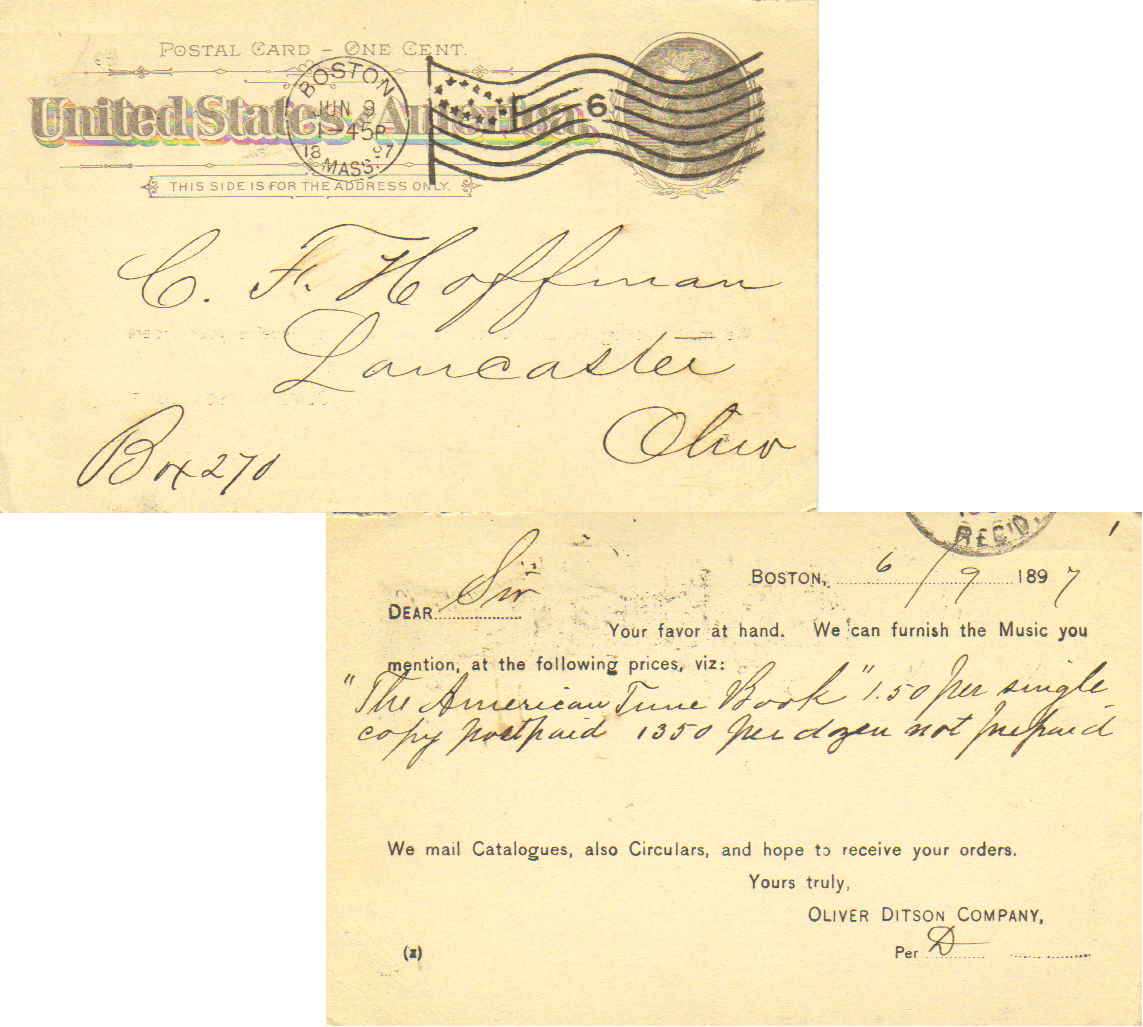 POSTAL CARD - ONE CENT.
United States America.
BOSTON
JUN 9
1 45P
1897
MASS.
6
THIS SIDE IS FOR THE ADDRESS ONLY.
C. F. Hoffman
Lancaster
Ohio
Box 270
REC'D.
BOSTON, 6/9 1897
DEAR Sir
Your favor at hand. We can furnish the Music you
mention, at the following prices, viz:
"The American Tune Book" 1.50 per single
copy postpaid 1350 per dozen not prepaid
We mail Catalogues, also Circulars, and hope to receive your orders.
Yours truly,
OLIVER DITSON COMPANY,
(z) Per D